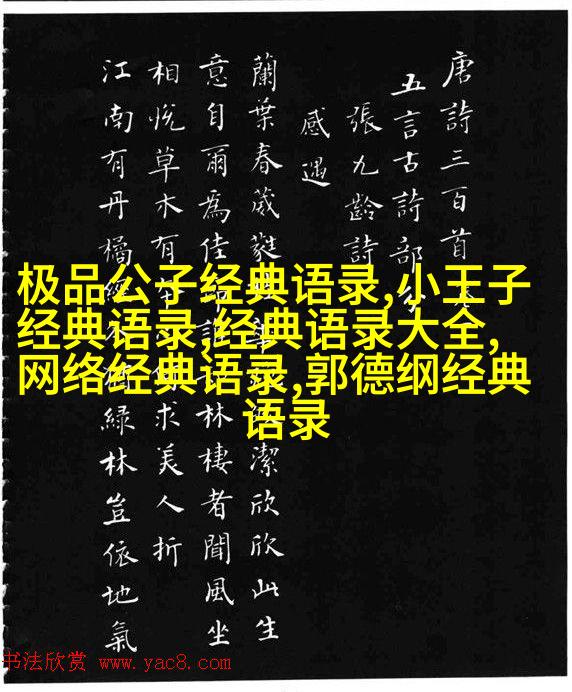 唐詩三百首
五言古詩部
張九齡詩
感遇
蘭葉春葳蕤華潔欣欣此生
意自爾為佳誰林棲者聞風坐
相悅草木有求美人折
江南有丹橘經綠林豈依地氣
极品公子经典语录,小王子
经典语录,经典语录大全,
网络经典语录,郭德纲经典
语录
书法欣赏 www.yac8.com